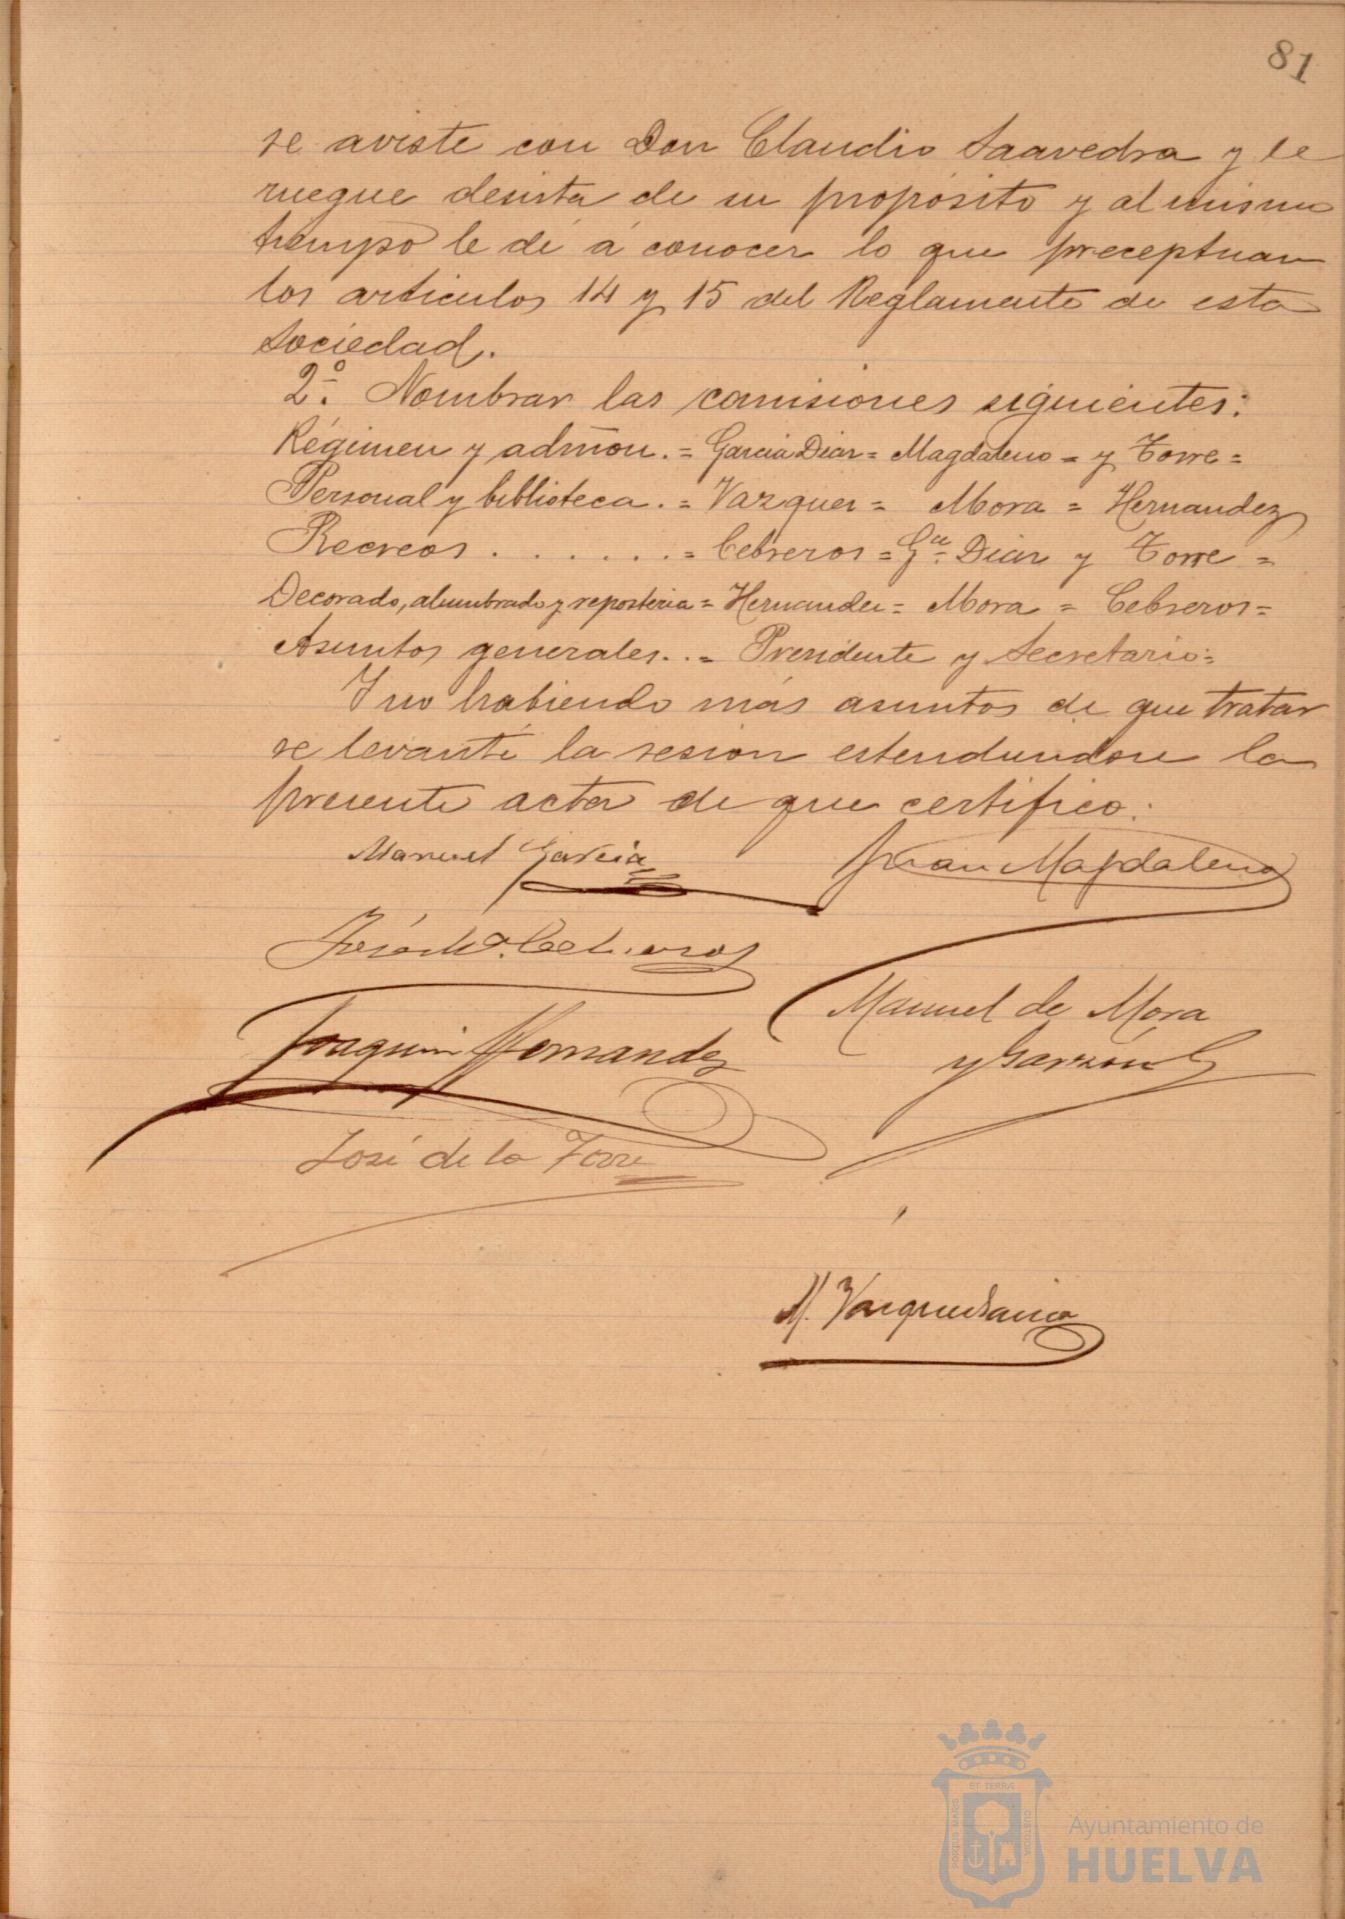 81
se aviste con Don Claudio Saavedra y le
ruegue desista de su propósito y al mismo
tiempo le dé á conocer lo que preceptuan
los articulos 14 y 15 del Reglamento de esta
Sociedad.
2º. Nombrar las comisiones siguientes:
Régimen y admõn. = Garcia Diaz = Magdaleno = y Torre =
Personal y biblioteca. = Vazquez = Mora = Hernandez
Recreos . . . . . . . = Cebreros = Gª. Diaz y Torre =
Decorado, alumbrado y reposteria = Hernandez = Mora = Cebreros =
Asuntos generales. . = Presidente y Secretario =
Y no habiendo más asuntos de que tratar
se levantó la sesion estendiendose la
presente acta de que certifico:
Manuel Garcia
Juan Magdaleno
José Mª. Cebreros
Manuel de Mora
y Garzón
Joaquin Hernandez
José de la Torre
M. Vazquez
PORTUS MARIS
ET TERRÆ
CUSTODIA
Ayuntamiento de
HUELVA